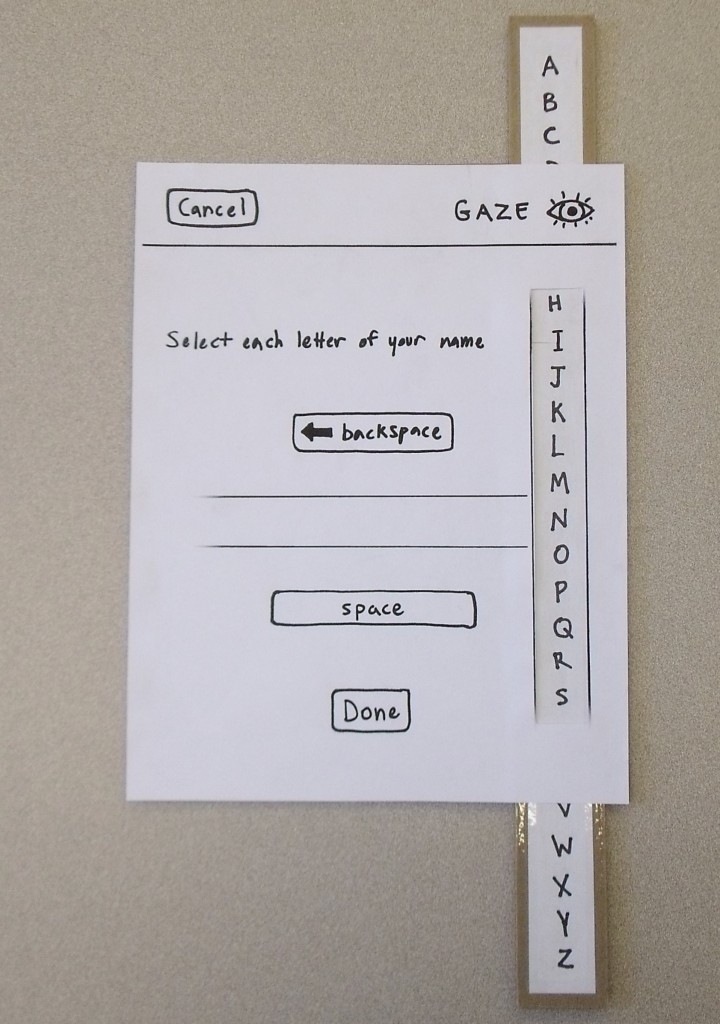 A
B
C
Cancel
GAZE
Select each letter of your name
backspace
space
Done
H
I
J
K
L
M
N
O
P
Q
R
S
V
W
X
Y
Z